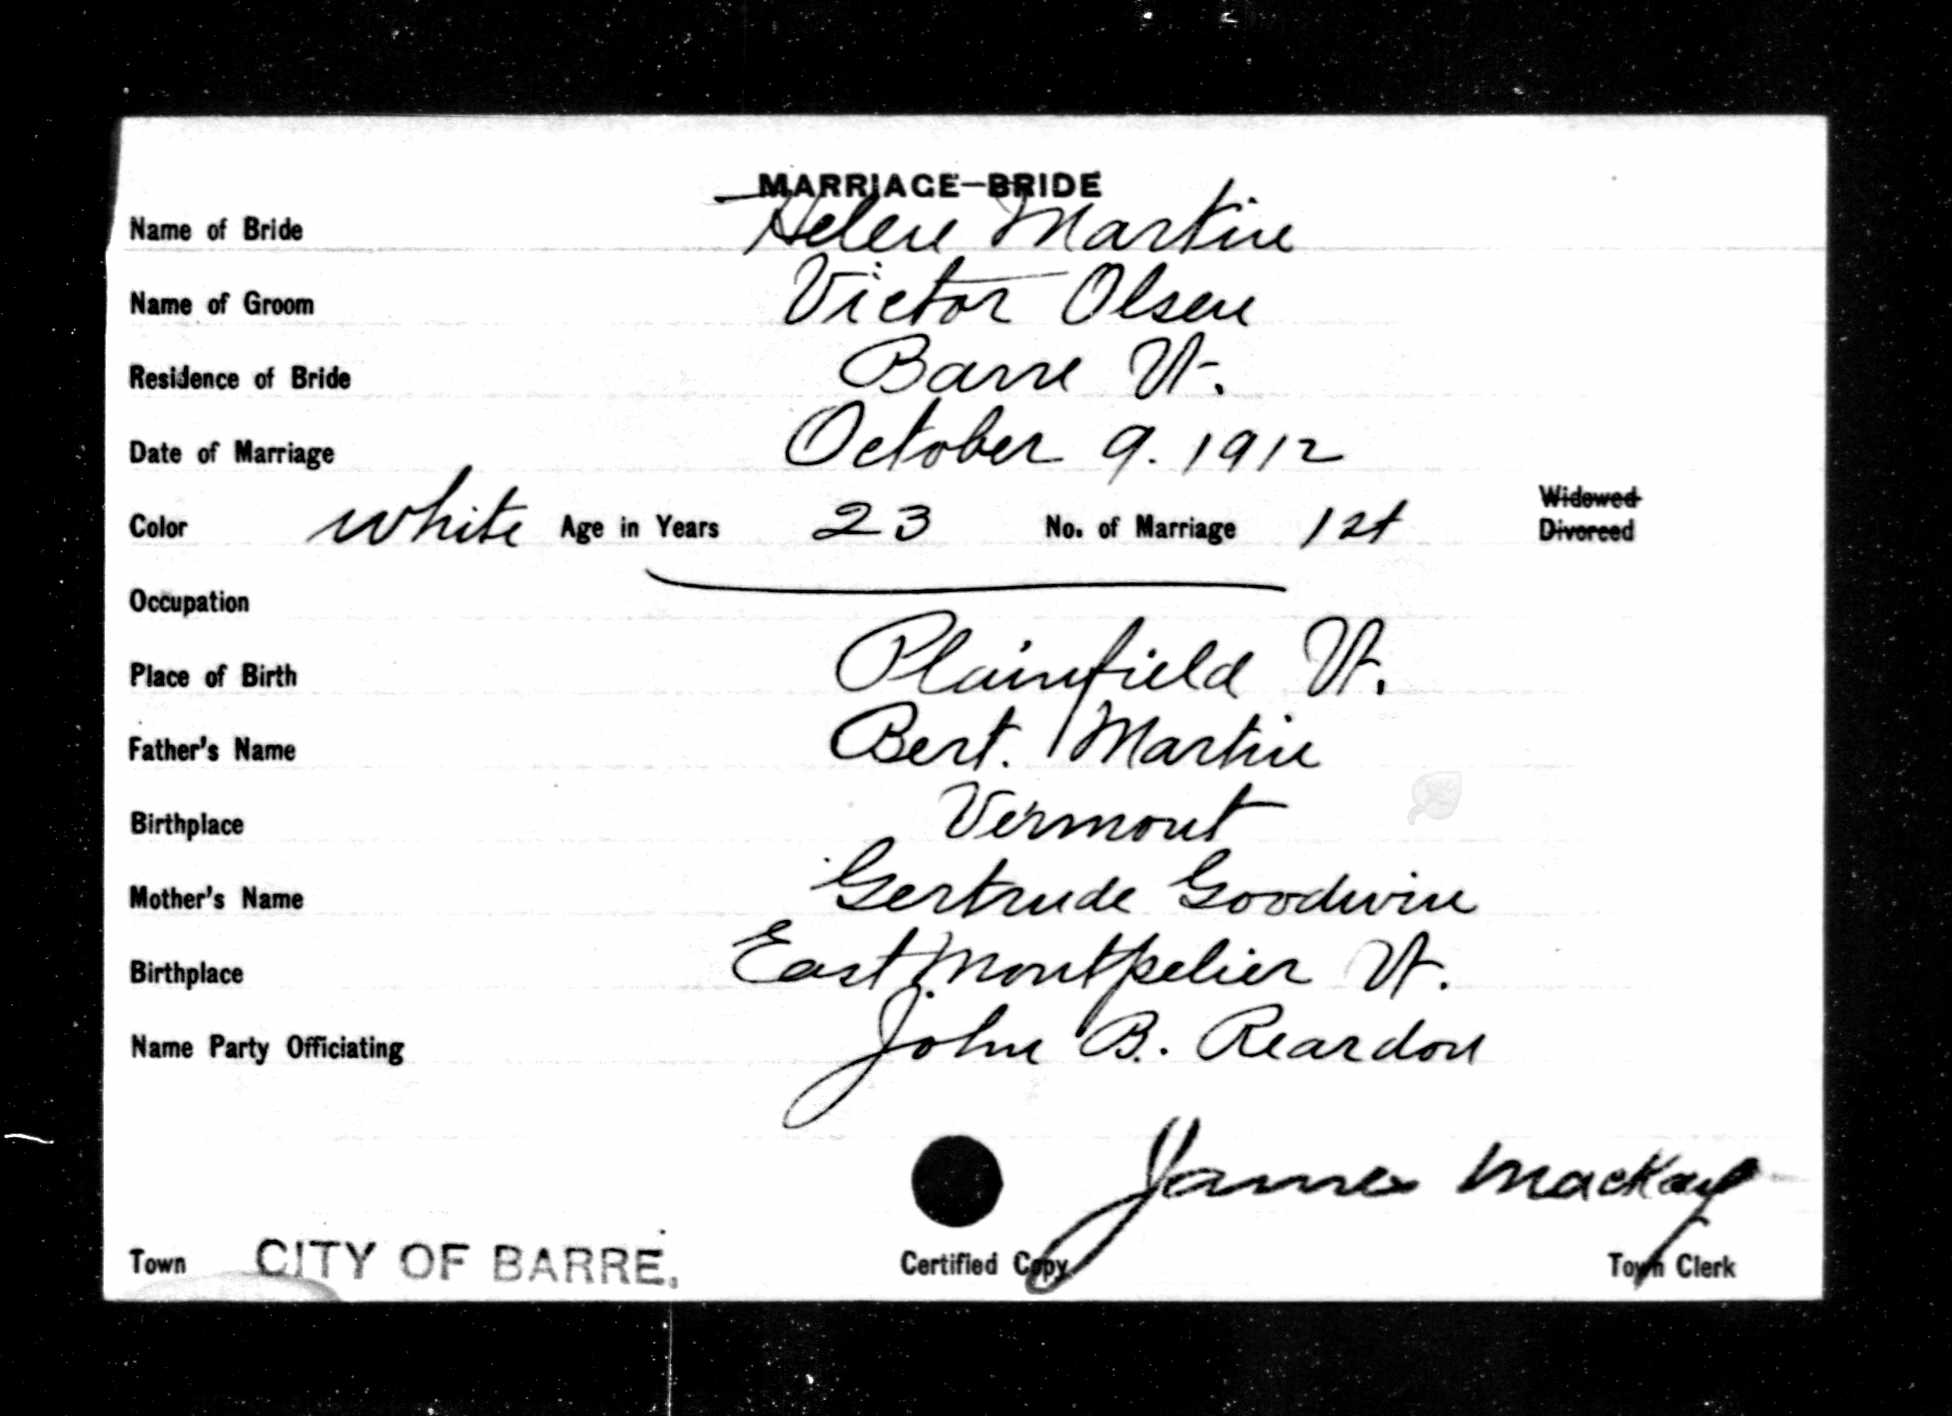 MARRIAGE—BRIDE
Name of Bride Helen Martin
Name of Groom Victor Olsen
Residence of Bride Barre Vt.
Date of Marriage October 9. 1912
Color white Age in Years 23 No. of Marriage 1st Widowed Divorced
Occupation
Place of Birth Plainfield Vt.
Father's Name Bert. Martin
Birthplace Vermont
Mother's Name Gertrude Goodwin
Birthplace East Montpelier Vt.
Name Party Officiating John B. Reardon
James Mackay
Town CITY OF BARRE. Certified Copy Town Clerk